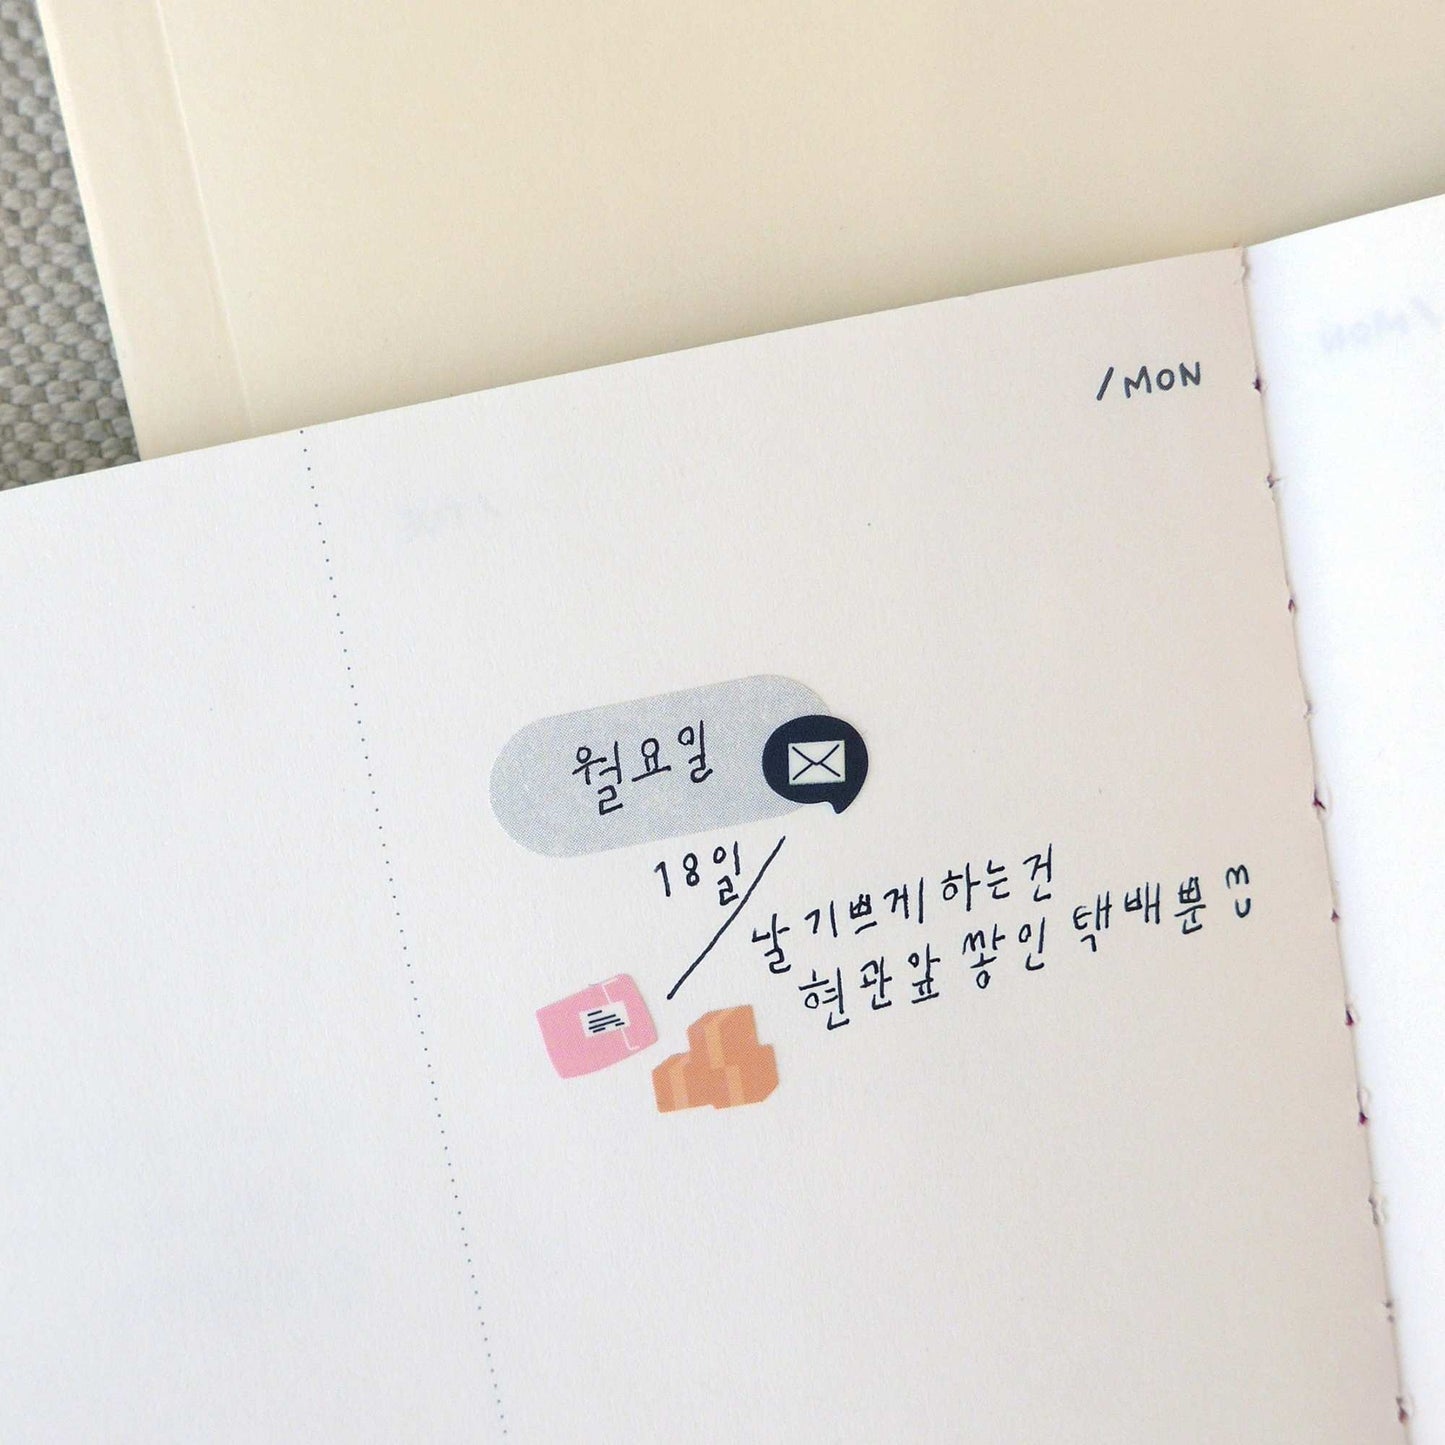 /MON
월요일
18일
날 기쁘게 하는건
현관앞 쌓인 택배뿐